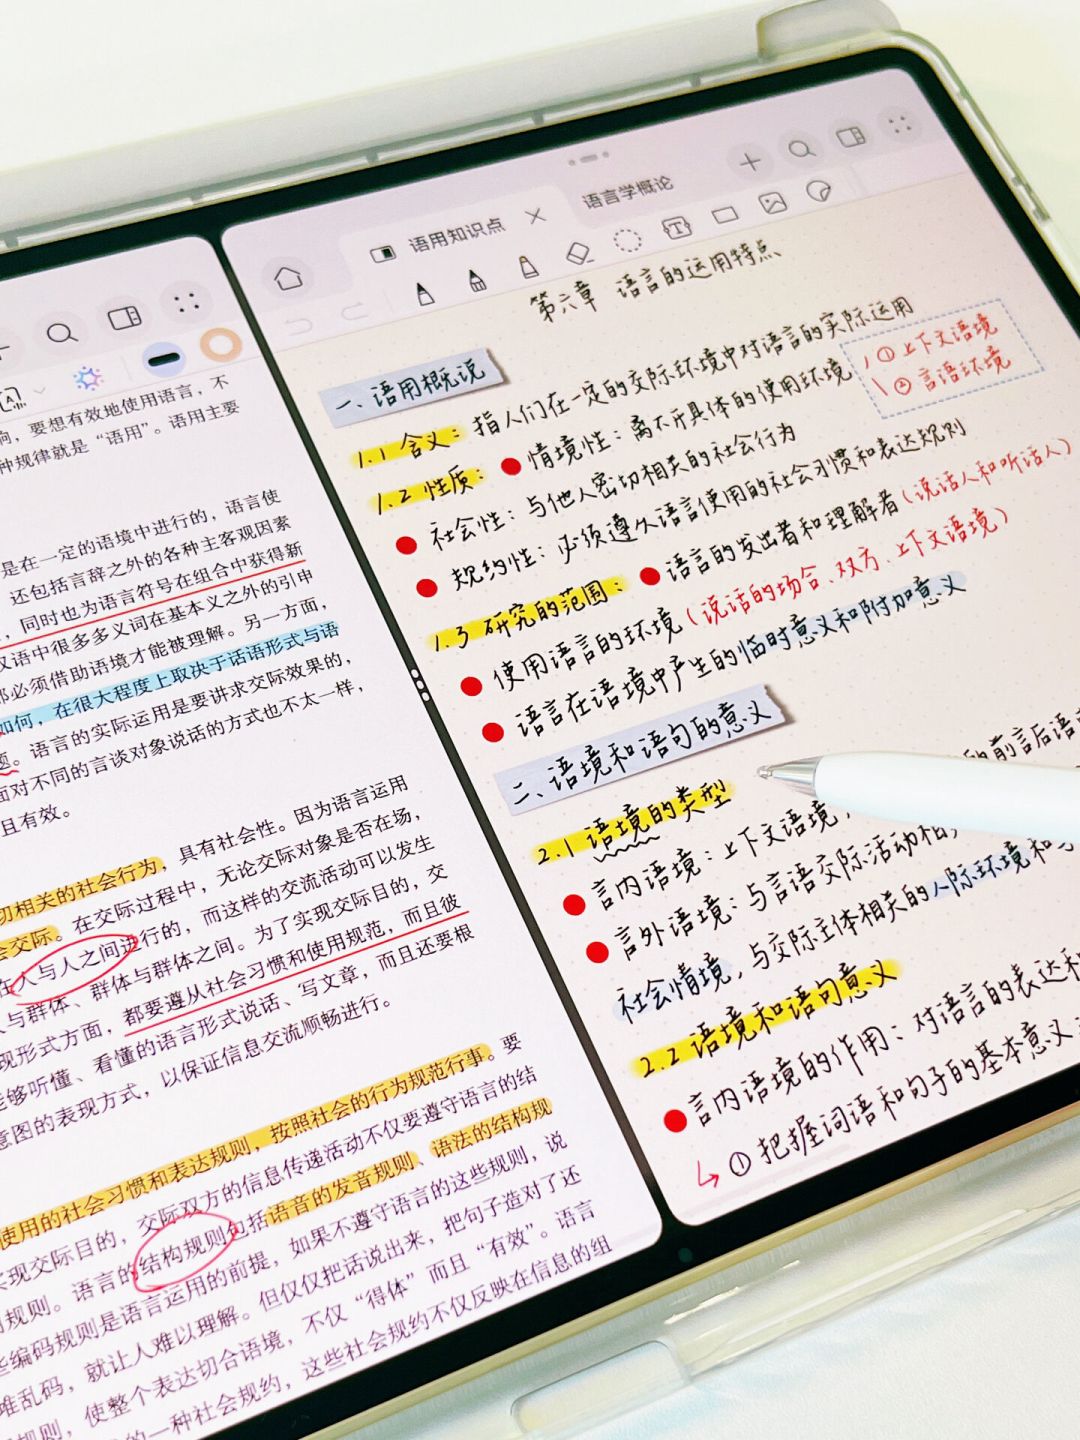 响，要想有效地使用语言，不
种规律就是“语用”。语用主要
是在一定的语境中进行的，语言使
还包括言辞之外的各种主客观因素
，同时也为语言符号在组合中获得新
汉语中很多多义词在基本义之外的引申
都必须借助语境才能被理解。另一方面，
如何，在很大程度上取决于话语形式与语
题。语言的实际运用是要讲求交际效果的，
面对不同的言谈对象说话的方式也不太一样，
且有效。
切相关的社会行为，具有社会性。因为语言运用
会交际。在交际过程中，无论交际对象是否在场，
在人与人之间进行的，而这样的交流活动可以发生
人与群体、群体与群体之间。为了实现交际目的，交
现形式方面，都要遵从社会习惯和使用规范，而且彼
能够听懂、看懂的语言形式说话、写文章，而且还要根
意图的表现方式，以保证信息交流顺畅进行。
使用的社会习惯和表达规则，按照社会的行为规范行事。要
实现交际目的，交际双方的信息传递活动不仅要遵守语言的结
规则。语言的结构规则包括语音的发音规则、语法的结构规
些编码规则是语言运用的前提，如果不遵守语言的这些规则，说
堆乱码，就让人难以理解。但仅仅把话说出来，把句子造对了还
规则，使整个表达切合语境，不仅“得体”而且“有效”。语言
的一种社会规约，这些社会规约不仅反映在信息的组
语用知识点
语言学概论
第六章 语言的运用特点
一、语用概说
1.1 含义：指人们在一定的交际环境中对语言的实际运用
1.2 性质：情境性：离不开具体的使用环境
①上下文语境
②言语环境
社会性：与他人密切相关的社会行为
规约性：必须遵久语言使用的社会习惯和表达规则
1.3 研究的范围：语言的发出者和理解者（说话人和听话人）
使用语言的环境（说话的场合、双方、上下文语境）
语言在语境中产生的临时意义和附加意义
二、语境和语句的意义
2.1 语境的类型
言内语境：上下文语境，的前言后语
言外语境：与言语交际活动相，
社会情境，与交际主体相关的人际环境和
2.2 语境和语句意义
言内语境的作用：对语言的表达和
①把握词语和句子的基本意义